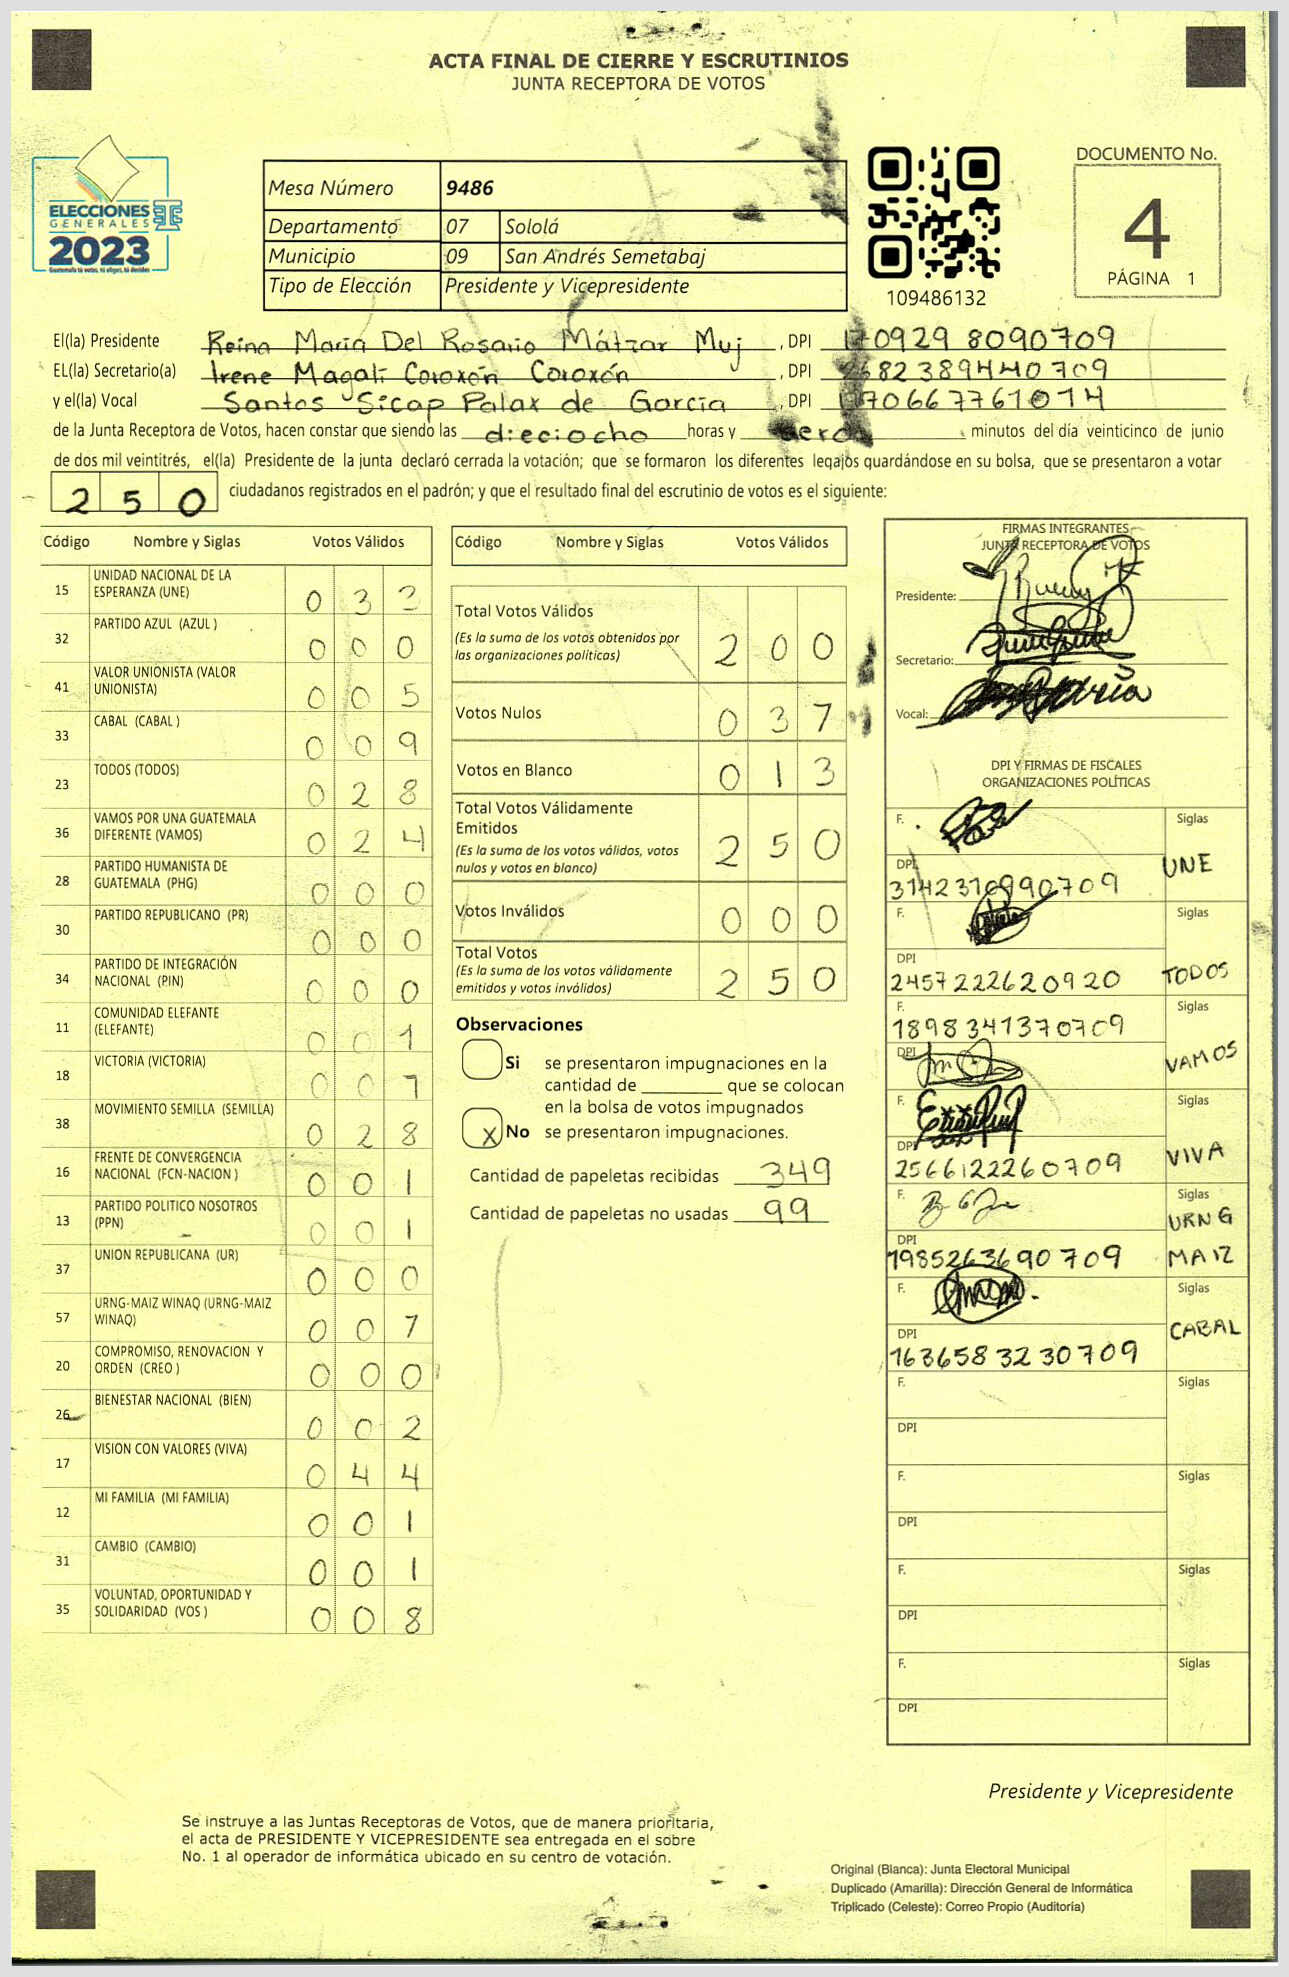 ACTA FINAL DE CIERRE Y ESCRUTINIOS
JUNTA RECEPTORA DE VOTOS
ELECCIONES
GENERALES
2023
Guatemala tú votas, tú eliges, tú decides
Mesa Número 9486
Departamento 07 Sololá
Municipio 09 San Andrés Semetabaj
Tipo de Elección Presidente y Vicepresidente
109486132
DOCUMENTO No.
4
PÁGINA 1
El(la) Presidente Reina María Del Rosario Mátzar Muj, DPI 170929 8090709
EL(la) Secretario(a) Irene Magalí Coroxón Coroxón, DPI 682389440709
y el(la) Vocal Santos Sicap Palax de García, DPI 1706677610714
de la Junta Receptora de Votos, hacen constar que siendo las dieciocho horas y cero minutos del día veinticinco de junio
de dos mil veintitrés, el(la) Presidente de la junta declaró cerrada la votación; que se formaron los diferentes legajos guardándose en su bolsa, que se presentaron a votar
250 ciudadanos registrados en el padrón; y que el resultado final del escrutinio de votos es el siguiente:
Código Nombre y Siglas Votos Válidos
15 UNIDAD NACIONAL DE LA ESPERANZA (UNE) 0 3 3
32 PARTIDO AZUL (AZUL ) 0 0 0
41 VALOR UNIONISTA (VALOR UNIONISTA) 0 0 5
33 CABAL (CABAL ) 0 0 9
23 TODOS (TODOS) 0 2 8
36 VAMOS POR UNA GUATEMALA DIFERENTE (VAMOS) 0 2 4
28 PARTIDO HUMANISTA DE GUATEMALA (PHG) 0 0 0
30 PARTIDO REPUBLICANO (PR) 0 0 0
34 PARTIDO DE INTEGRACIÓN NACIONAL (PIN) 0 0 0
11 COMUNIDAD ELEFANTE (ELEFANTE) 0 0 1
18 VICTORIA (VICTORIA) 0 0 7
38 MOVIMIENTO SEMILLA (SEMILLA) 0 2 8
16 FRENTE DE CONVERGENCIA NACIONAL (FCN-NACION ) 0 0 1
13 PARTIDO POLITICO NOSOTROS (PPN) 0 0 1
37 UNION REPUBLICANA (UR) 0 0 0
57 URNG-MAIZ WINAQ (URNG-MAIZ WINAQ) 0 0 7
20 COMPROMISO, RENOVACION Y ORDEN (CREO ) 0 0 0
26 BIENESTAR NACIONAL (BIEN) 0 0 2
17 VISION CON VALORES (VIVA) 0 4 4
12 MI FAMILIA (MI FAMILIA) 0 0 1
31 CAMBIO (CAMBIO) 0 0 1
35 VOLUNTAD, OPORTUNIDAD Y SOLIDARIDAD (VOS ) 0 0 8
Código Nombre y Siglas Votos Válidos
Total Votos Válidos 2 0 0
(Es la suma de los votos obtenidos por
las organizaciones políticas)
Votos Nulos 0 3 7
Votos en Blanco 0 1 3
Total Votos Válidamente
Emitidos 2 5 0
(Es la suma de los votos válidos, votos
nulos y votos en blanco)
Votos Inválidos 0 0 0
Total Votos 2 5 0
(Es la suma de los votos válidamente
emitidos y votos inválidos)
Observaciones
Si se presentaron impugnaciones en la
cantidad de ________ que se colocan
en la bolsa de votos impugnados
X No se presentaron impugnaciones.
Cantidad de papeletas recibidas 349
Cantidad de papeletas no usadas 99
FIRMAS INTEGRANTES
JUNTA RECEPTORA DE VOTOS
Presidente:
Secretario:
Vocal:
DPI Y FIRMAS DE FISCALES
ORGANIZACIONES POLÍTICAS
F. Siglas
DPI UNE
3142310990709
F. Siglas
DPI
2457222620920 TODOS
F. Siglas
1898341370709
DPI VAMOS
F. Siglas
DPI
2566122260709 VIVA
F. Siglas
URNG
DPI
1985263690709 MAIZ
F. Siglas
DPI CABAL
1636583230709
F. Siglas
DPI
F. Siglas
DPI
F. Siglas
DPI
F. Siglas
DPI
Presidente y Vicepresidente
Se instruye a las Juntas Receptoras de Votos, que de manera prioritaria,
el acta de PRESIDENTE Y VICEPRESIDENTE sea entregada en el sobre
No. 1 al operador de informática ubicado en su centro de votación.
Original (Blanca): Junta Electoral Municipal
Duplicado (Amarilla): Dirección General de Informática
Triplicado (Celeste): Correo Propio (Auditoría)